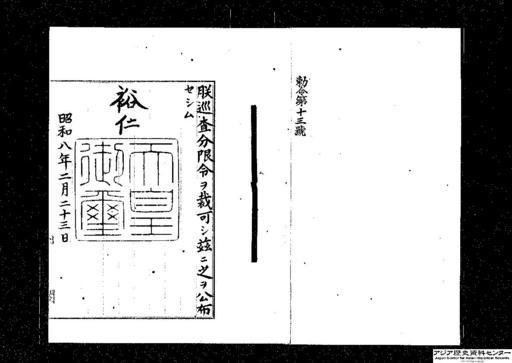 勅令第十三號
朕巡査分限令ヲ裁可シ茲ニ之ヲ公布
セシム
裕仁
天皇御璽
昭和八年二月二十三日
アジア歴史資料センター
Japan Center for Asian Historical Records